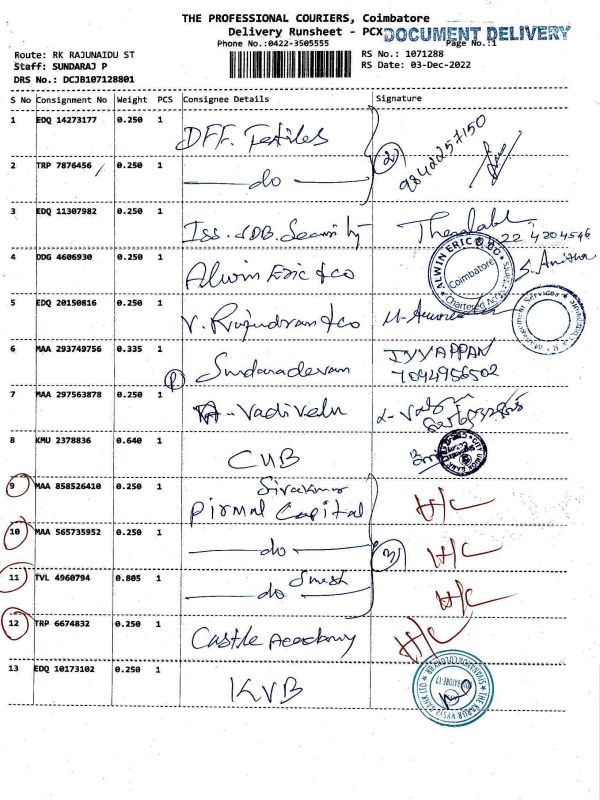 THE PROFESSIONAL COURIERS, Coimbatore
Delivery Runsheet - PCX
DOCUMENT DELIVERY
Phone No.:0422-3505555
Page No.:1
Route: RK RAJUNAIDU ST
RS No.: 1071288
Staff: SUNDARAJ P
RS Date: 03-Dec-2022
DRS No.: DCJB107128801
S No Consignment No Weight PCS Consignee Details Signature
1 EDQ 14273177 0.250 1 DFF. Textiles
2 9842257150
2 TRP 7876456 0.250 1 do
3 EDQ 11307982 0.250 1 Iss. SDB. Security
22 4204546
4 DDG 4606930 0.250 1 Alwin Eric & co
ALWIN ERIC & CO
Coimbatore
Chartered
S. Anitha
5 EDQ 20150816 0.250 1 V. Rajendran & co
Management Services
6 MAA 293749756 0.335 1 Sundaradevan IYYAPPAN
P 7094956502
7 MAA 297563878 0.250 1 A. Vadivelu
8 KMU 2378836 0.640 1 CUB
CITY UNION BANK
9 MAA 858526410 0.250 1 Sivakumar
Pirmal Capital H/C
10 MAA 565735952 0.250 1 do 3 H/C
11 TVL 4960794 0.805 1 do Suresh H/C
12 TRP 6674832 0.250 1 Castle Academy H/C
13 EDQ 10173102 0.250 1 KVB
THE KARUR VYSYA BANK LTD